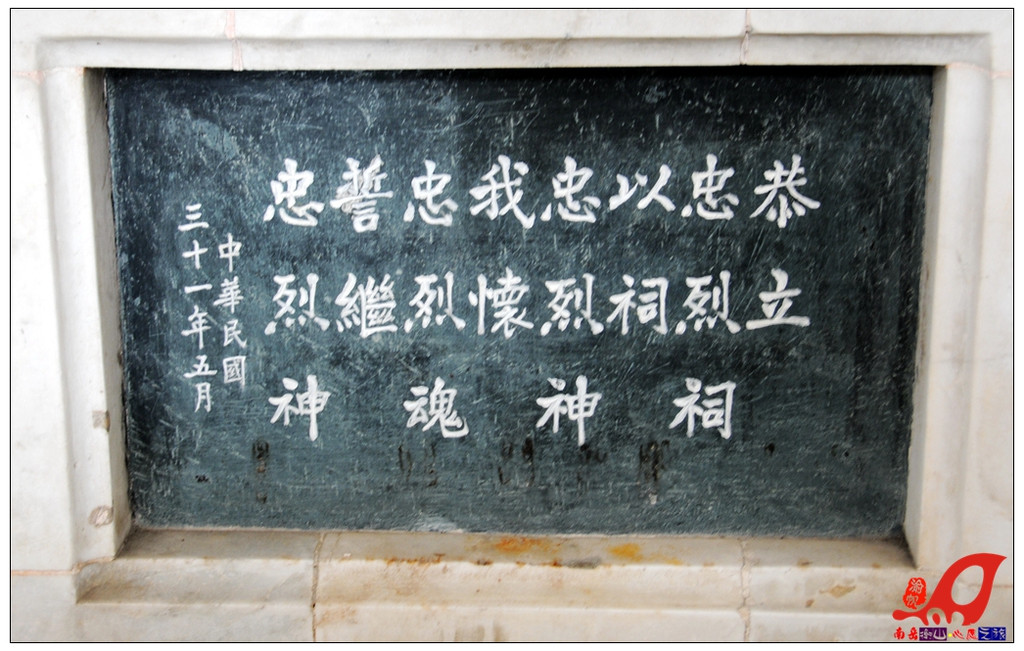 恭立
忠烈祠
以祠
忠烈神
我懷
忠烈魂
誓繼
忠烈神
中華民國
三十一年五月
南岳衡山·心愿之旅